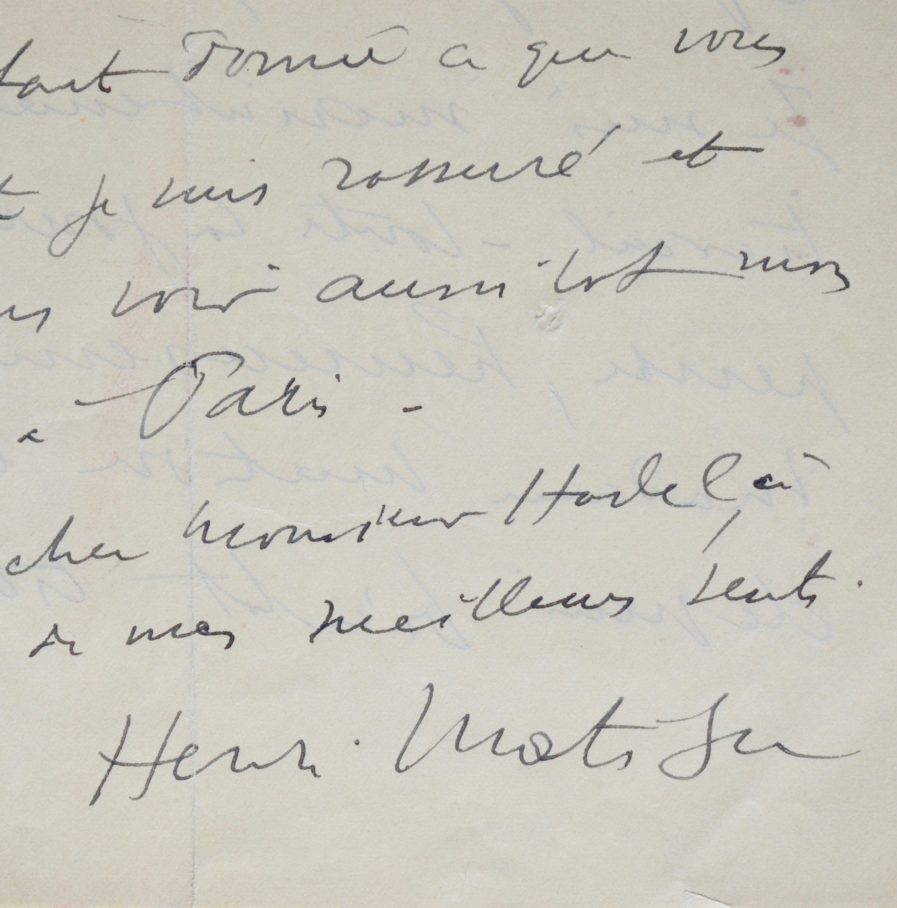 tant donné ce que vous
je suis rassuré et
voir aussitôt mon
à Paris -
cher Monsieur Hodel, à
de mes meilleurs sents.
Henri Matisse